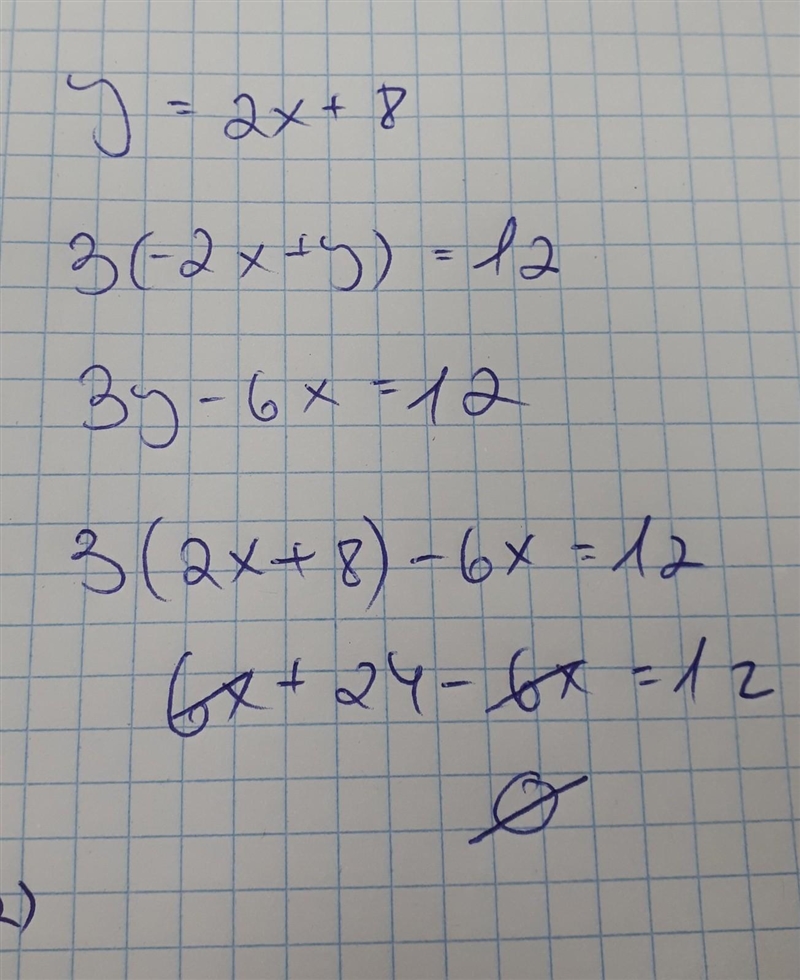 y = 2x + 8
3(-2x+y) = 12
3y - 6x = 12
3(2x+8) - 6x = 12
6x + 24 - 6x = 12
∅
2)